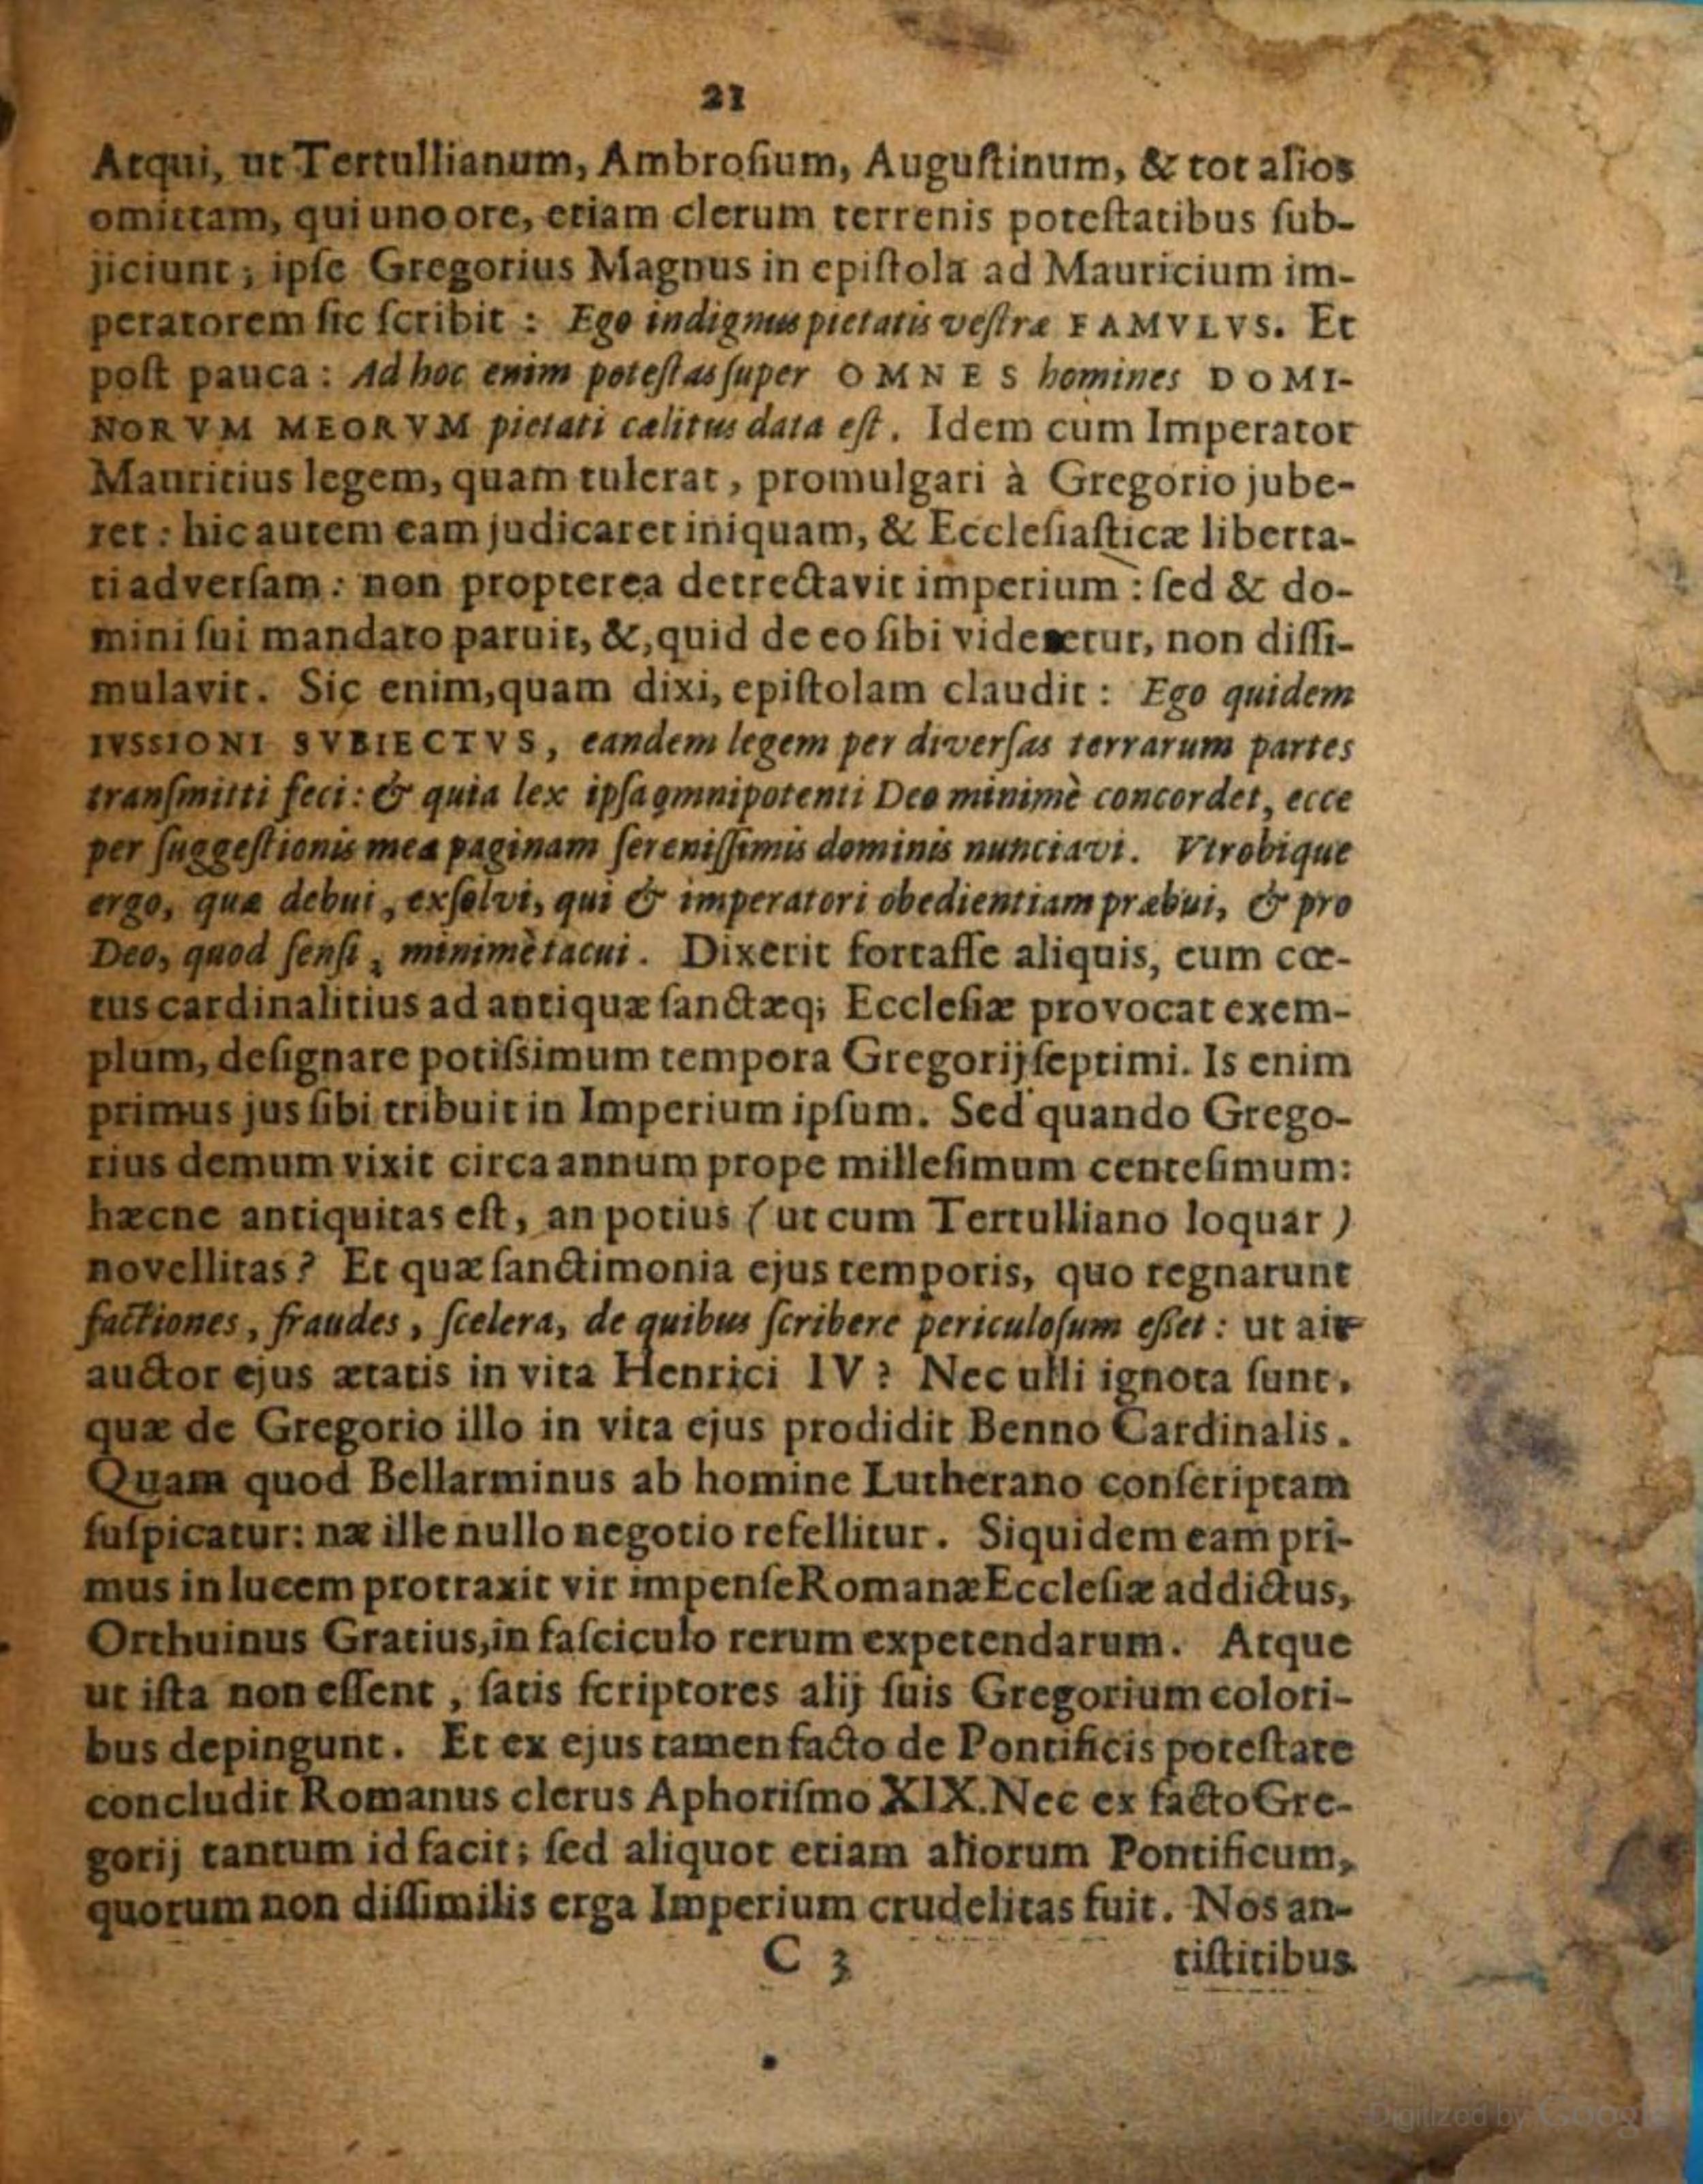 21
Atqui, ut Tertullianum, Ambroſium, Auguſtinum, & tot alios
omittam, qui uno ore, etiam clerum terrenis poteſtatibus ſub-
jiciunt; ipſe Gregorius Magnus in epiſtola ad Mauricium im-
peratorem ſic ſcribit : Ego indignus pietatis veſtræ FAMVLVS. Et
poſt pauca : Ad hoc enim poteſtas ſuper OMNES homines DOMI-
NORVM MEORVM pietati cælitus data eſt. Idem cùm Imperator
Mauritius legem, quam tulerat, promulgari à Gregorio jube-
ret : hic autem eam judicaret iniquam, & Eccleſiaſticæ liberta-
ti adverſam : non propterea detrectavit imperium : ſed & do-
mini ſui mandato paruit, &, quid de eo ſibi videretur, non diſſi-
mulavit. Sic enim, quam dixi, epiſtolam claudit : Ego quidem
IVSSIONI SVBIECTVS, eandem legem per diverſas terrarum partes
tranſmitti feci : & quia lex ipſa omnipotenti Deo minimè concordet, ecce
per ſuggeſtionis meæ paginam ſereniſſimis dominis nunciavi. Vtrobique
ergo, quæ debui, exſolvi, qui & imperatori obedientiam præbui, & pro
Deo, quod ſenſi, minimè tacui. Dixerit fortaſſe aliquis, cum cœ-
tus cardinalitius ad antiquæ ſanctæq; Eccleſiæ provocat exem-
plum, deſignare potiſsimum tempora Gregorij ſeptimi. Is enim
primus jus ſibi tribuit in Imperium ipſum. Sed quando Grego-
rius demum vixit circa annum prope milleſimum centeſimum:
hæcne antiquitas eſt, an potius (ut cum Tertulliano loquar)
novellitas? Et quæ ſanctimonia ejus temporis, quo regnarunt
factiones, fraudes, ſcelera, de quibus ſcribere periculoſum eſſet : ut ait
auctor ejus ætatis in vita Henrici IV? Nec ulli ignota ſunt,
quæ de Gregorio illo in vita ejus prodidit Benno Cardinalis.
Quam quod Bellarminus ab homine Lutherano conſcriptam
ſuſpicatur: næ ille nullo negotio refellitur. Siquidem eam pri-
mus in lucem protraxit vir impenſe Romanæ Eccleſiæ addictus,
Orthuinus Gratius, in faſciculo rerum expetendarum. Atque
ut iſta non eſſent, ſatis ſcriptores alij ſuis Gregorium colori-
bus depingunt. Et ex ejus tamen facto de Pontificis poteſtate
concludit Romanus clerus Aphoriſmo XIX. Nec ex facto Gre-
gorij tantum id facit; ſed aliquot etiam aliorum Pontificum,
quorum non diſſimilis erga Imperium crudelitas fuit. Nos an-
C 3 tiſtitibus
Digitized by Google